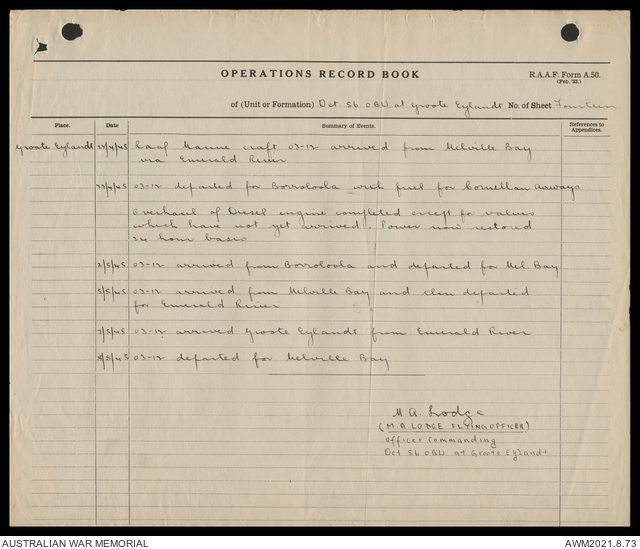 OPERATIONS RECORD BOOK
R.A.A.F. Form A.50.
(Feb. '22.)
of (Unit or Formation) Det 56 OBU at Groote Eylandt No. of Sheet Fourteen
Place. Date Summary of Events. References to Appendices.
Groote Eylandt /4/45 Raaf Marine craft 03-12 arrived from Melville Bay
via Emerald River
/4/45 03-12 departed for Borroloola with fuel for Connellan Airways
Overhaul of Diesel engine completed except for valves
which have not yet arrived. Power now restored
24 hour basis
2/5/45 03-12 arrived from Borroloola and departed for Mel. Bay
5/5/45 03-12 arrived from Melville Bay and then departed
for Emerald River
7/5/45 03-12 arrived Groote Eylandt from Emerald River
8/5/45 03-12 departed for Melville Bay
M A. Lodge
(M.A LODGE FLYING OFFICER)
Officer Commanding
Det 56 OBU at Groote Eylandt
AUSTRALIAN WAR MEMORIAL
AWM2021.8.73